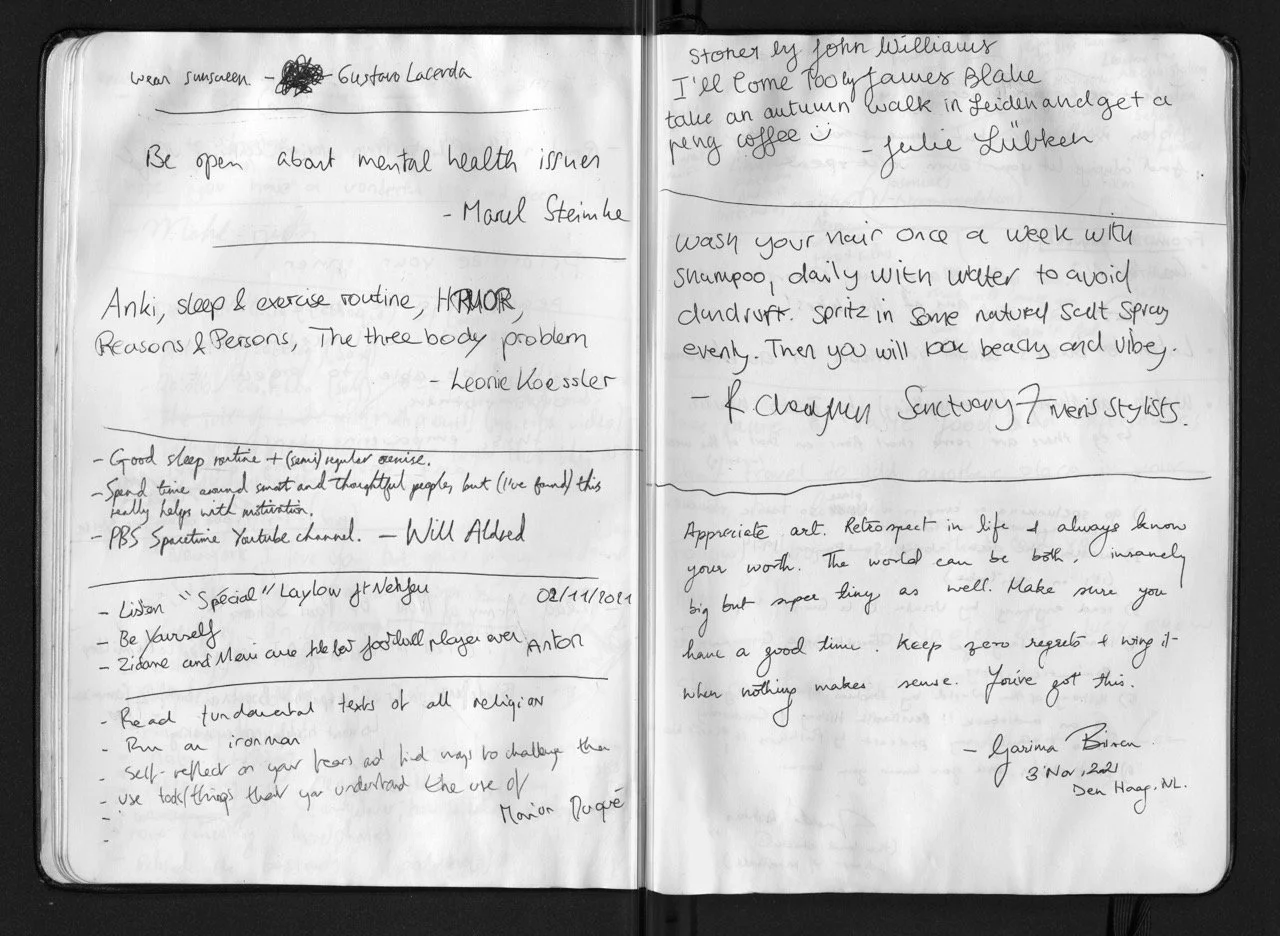 wear sunscreen - Gustavo Lacerda
Be open about mental health issues
- Marcel Steimke
Anki, sleep & exercise routine, HRUOR,
Reasons & Persons, The three body problem
- Leonie Koessler
- Good sleep routine + (semi) regular exercise.
- Spend time around smart and thoughtful people, but (I've found) this
really helps with motivation.
- PBS Spacetime Youtube channel. - Will Aldred
- Listen "Spécial" Laylow ft Nekfeu 02/11/2021
- Be yourself
- Zidane and Messi are the best football player ever Anton
- Read fundamental texts of all religion
- Run an ironman
- Self-reflect on your fears and find ways to challenge them
- use tools/things that you understand the use of
-
-
Marion Duqué
Stoner by John Williams
I'll Come Too by James Blake
take an autumn walk in Leiden and get a
peng coffee :)
- Julie Lübken
Wash your hair once a week with
shampoo, daily with water to avoid
dandruff. Spritz in some natural Salt Spray
evenly. Then you will look beachy and vibey.
- R. Sanctuary 7 mens stylists.
Appreciate art. Retrospect in life & always know
your worth. The world can be both, insanely
big but super tiny as well. Make sure you
have a good time. Keep zero regrets & wing it
when nothing makes sense. You've got this.
- Garima
3 Nov, 2021
Den Haag, NL.